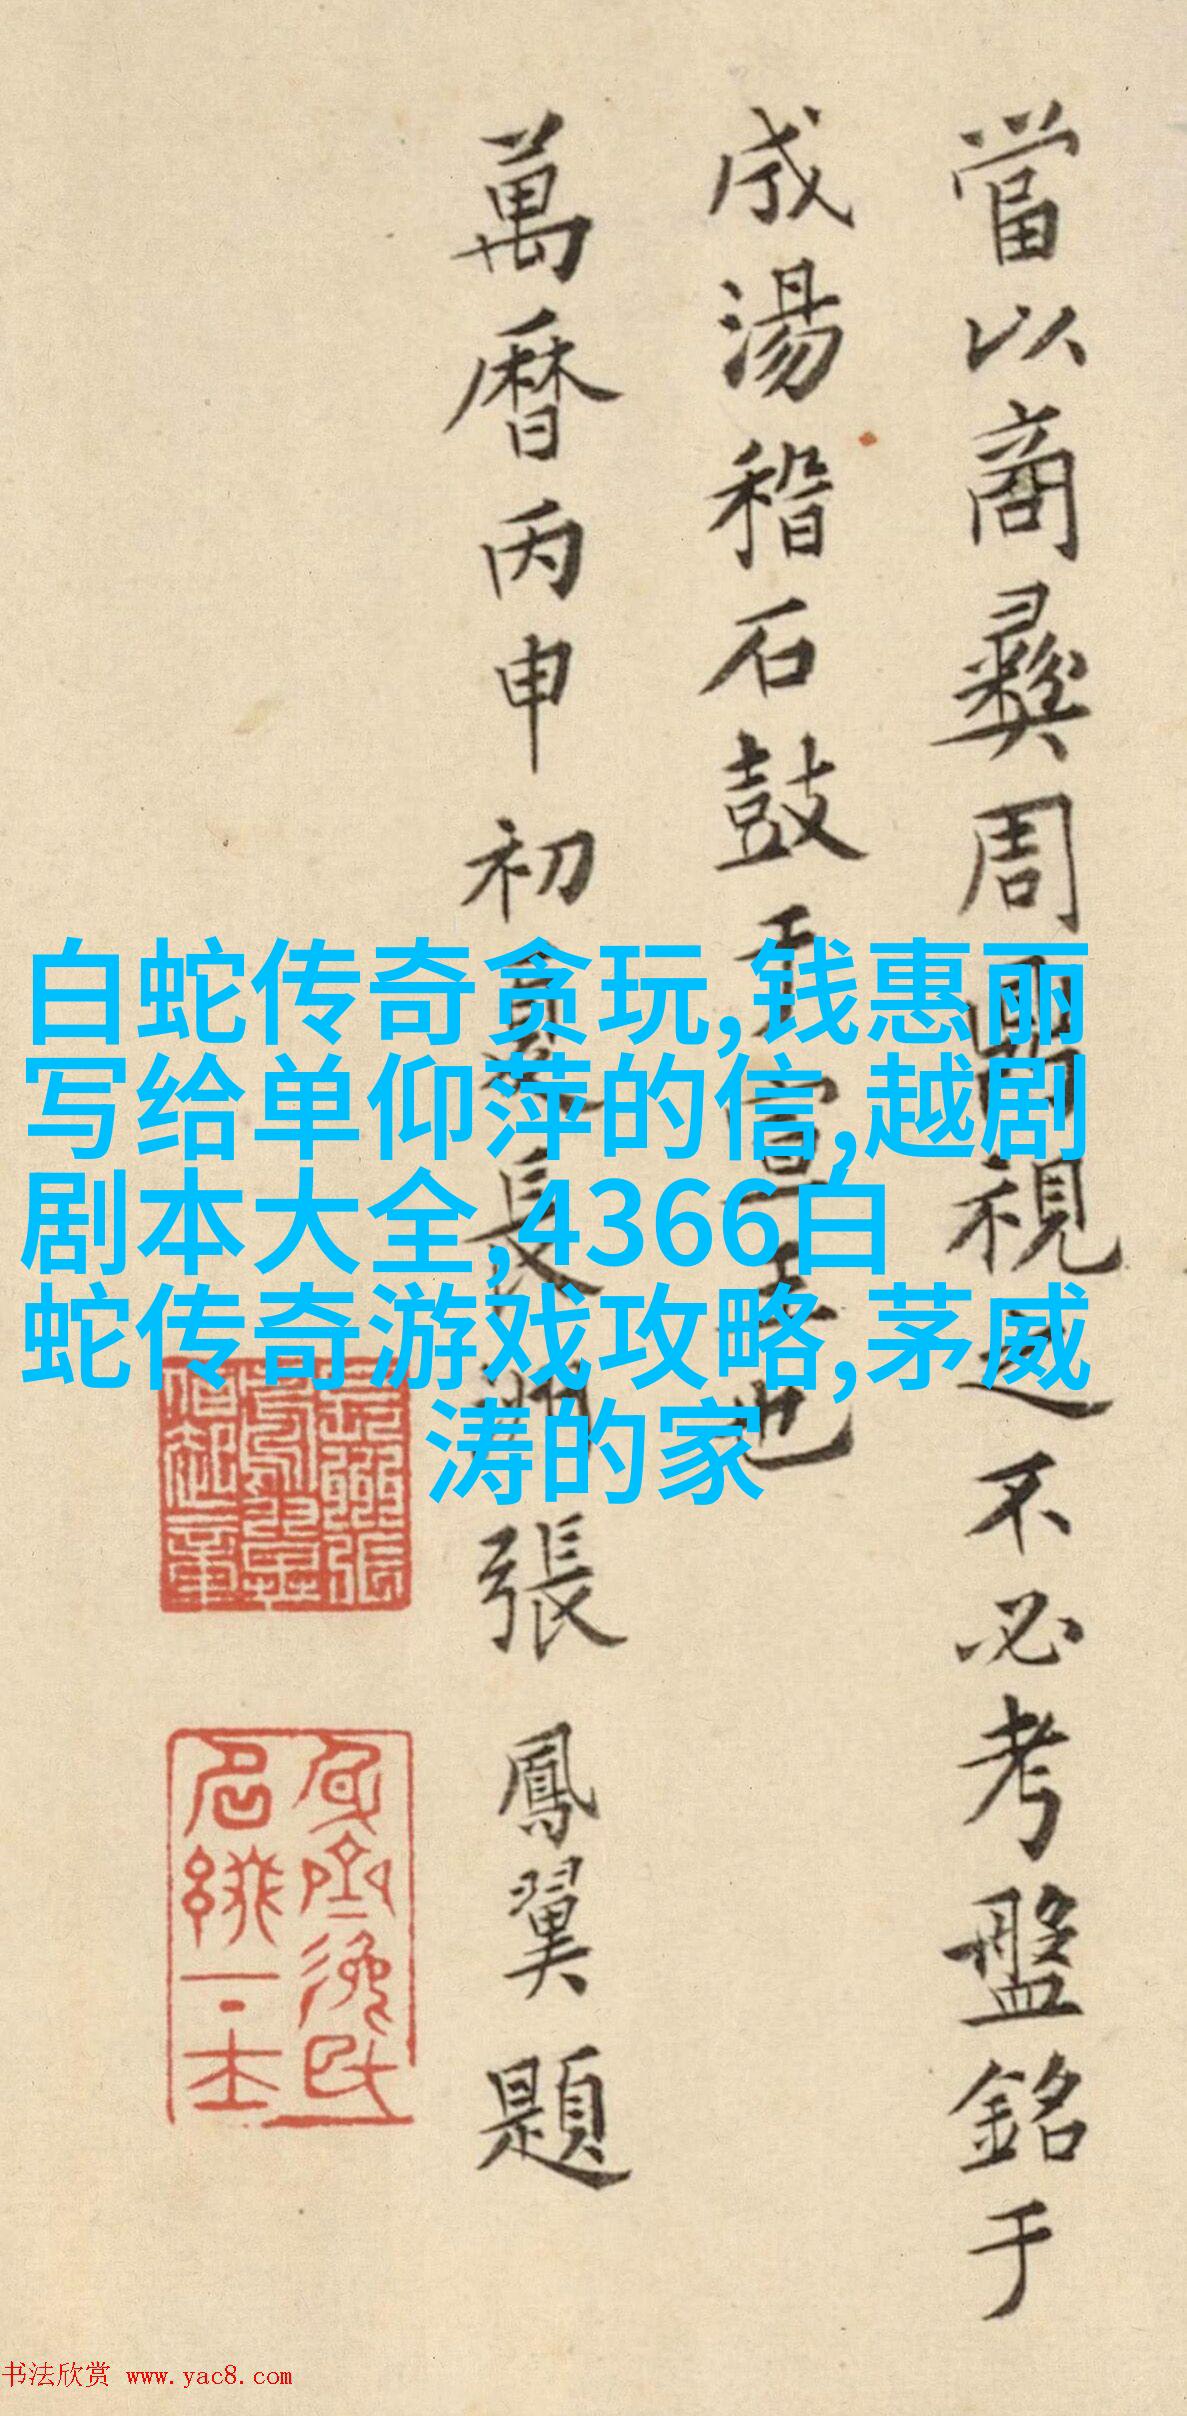 當以商彝周罍視之不必考盤銘于
成湯稽石鼓于宣王也
萬曆丙申初夏長洲張鳳翼題
白蛇传奇贪玩,钱惠丽
写给单仰萍的信,越剧
剧本大全,4366白
蛇传奇游戏攻略,茅威
涛的家
书法欣赏 www.yac8.com